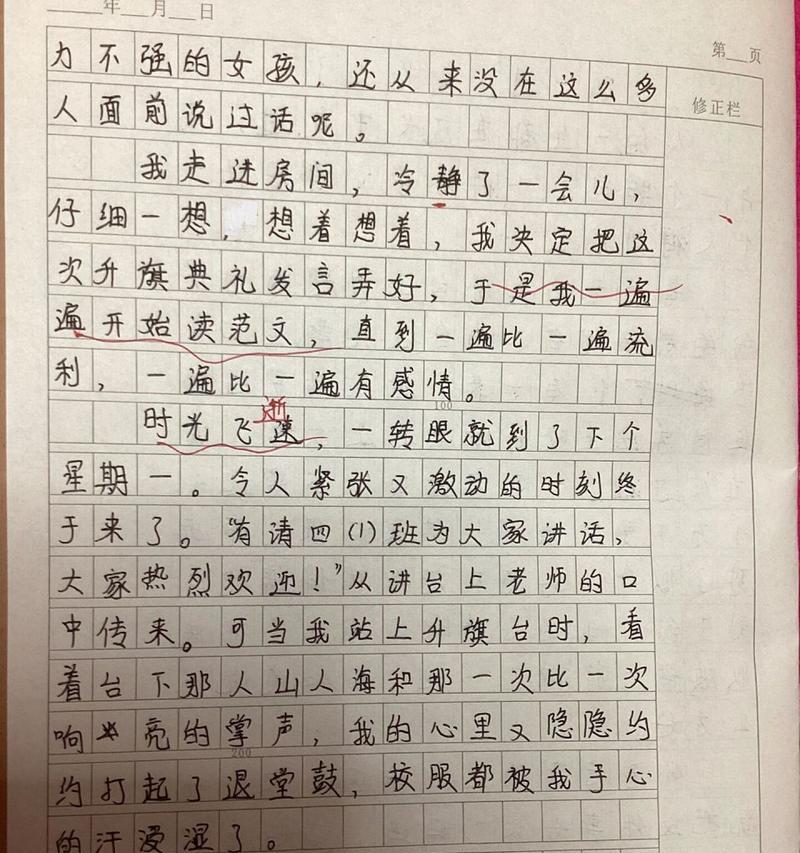 年 月 日
第 页
修正栏
力不强的女孩，还从来没在这么多
人面前说过话呢。
我走进房间，冷静了一会儿，
仔细一想，想着想着，我决定把这
次升旗典礼发言弄好，于是我一遍
遍开始读范文，直到一遍比一遍流
利，一遍比一遍有感情。
100
逝
时光飞速，一转眼就到了下个
星期一。令人紧张又激动的时刻终
于来了。“有请四（1）班为大家讲话，
大家热烈欢迎！”从讲台上老师的口
中传来。可当我站上升旗台时，看
着台下那人山人海和那一次比一次
响亮的掌声，我的心里又隐隐约
200
约打起了退堂鼓，校服都被我手心
的汗浸湿了。